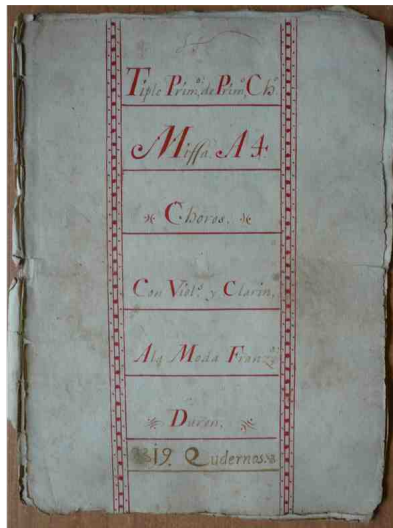 Tiple Primº de Primº Chº
Missa A 4
Choros.
Con Violˢ y Clarin,
Ala Moda Franzª
Duron.
19. Qudernos.